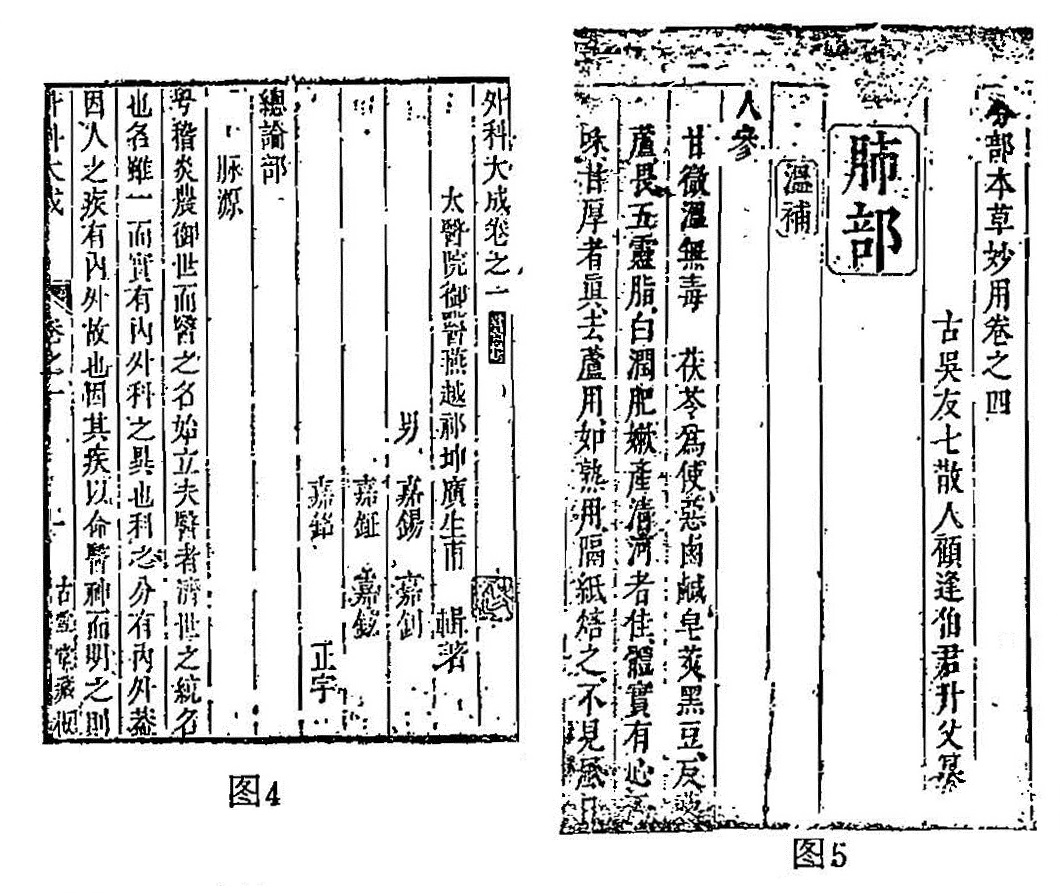 外科大成卷之一
太醫院御醫燕越祁坤廣生甫 輯著
男 嘉錫 嘉釗
嘉鉦 嘉鋐
嘉銘 正字
總論部
脉源
粤稽炎農御世而醫之名始立夫醫者濟世之統名
也名雖一而實有內外科之異也科之分有內外葢
因人之疾有內外故也因其疾以命醫神而明之則
外科大成 卷之一 一
图4
分部本草妙用卷之四
古吳友七散人顧逢伯君升父纂
肺部
溫補
人參
甘微溫無毒 茯苓爲使惡鹵鹹皂莢黑豆反
蘆畏五靈脂白潤肥嫩產清河者佳體實有心
味甘厚者眞去蘆用如熟用隔紙焙之不見風日
图5